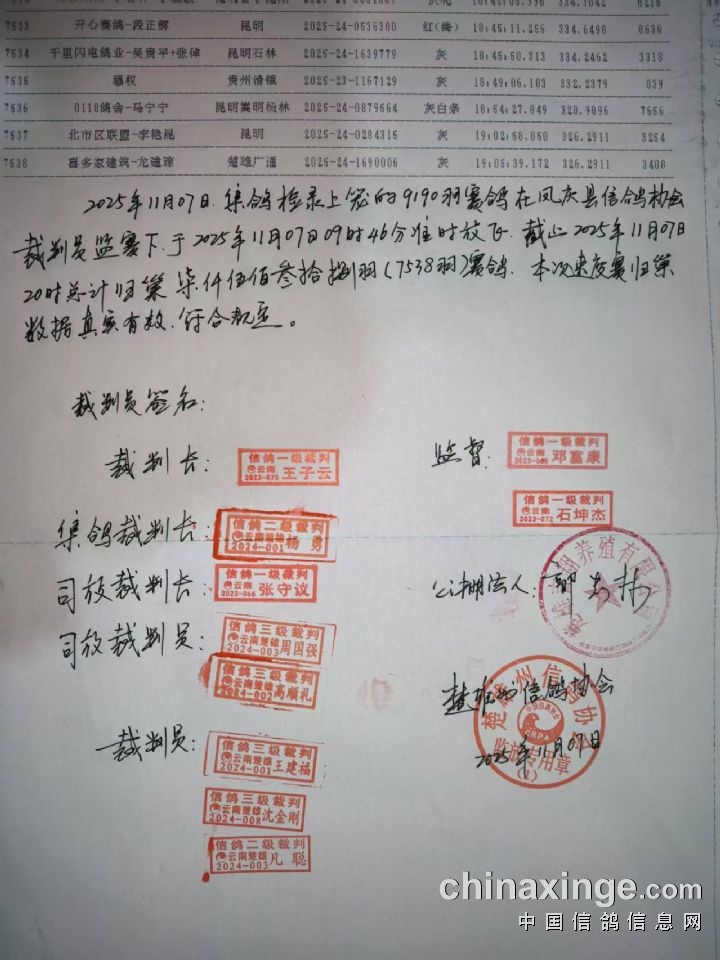 7533 开心赛鸽-段正辉 昆明 2025-24-0536300 红(绛) 18:45:11.256 334.6498 8636
7534 千里闪电鸽业-吴贵平+张倬 昆明石林 2025-24-1639779 灰 18:45:50.313 334.2462 3318
7535 穆权 贵州清镇 2025-23-1167129 灰 18:49:06.103 332.2379 839
7536 0118鸽舍-马宁宁 昆明嵩明杨林 2025-24-0879664 灰白条 18:54:27.849 328.9896 7656
7537 北市区联盟-李艳昆 昆明 2025-24-0284315 灰 19:02:58.860 326.2911 3254
7538 喜多家建筑-龙建琼 楚雄广通 2025-24-1690006 灰 19:05:39.172 326.2911 3408
2025年11月07日.集鸽检录上笼的9190羽赛鸽在凤庆县信鸽协会
裁判员监赛下.于2025年11月07日09时46分准时放飞.截止2025年11月07日
20时总计归巢 柒仟伍佰叁拾捌羽(7538羽)赛鸽.本次来度赛归巢
数据真实有效.符合规定。
裁判员签名:
裁判长:
信鸽一级裁判
云南
2023-070 王子云
监督:
信鸽一级裁判
云南 邓富康
信鸽一级裁判
云南
2023-072 石坤杰
集鸽裁判长:
信鸽二级裁判
云南楚雄
2024-001 杨勇
司放裁判长:
信鸽一级裁判
云南
2023-066 张守议
公棚法人:
翔养殖有限公司
司放裁判员:
信鸽三级裁判
云南楚雄
2024-003 周国强
信鸽三级裁判
云南楚雄
2024-002 高顺礼
楚雄州信鸽协会
楚雄州信鸽协会
中国信鸽协会
CRPA
监放专用章
(1)
2025年11月07日
裁判员:
信鸽三级裁判
云南楚雄
2024-001 王建福
信鸽三级裁判
云南楚雄
2024-008 沈金刚
信鸽二级裁判
云南楚雄
2024-003 凡聪
chinaxinge.com
中国信鸽信息网